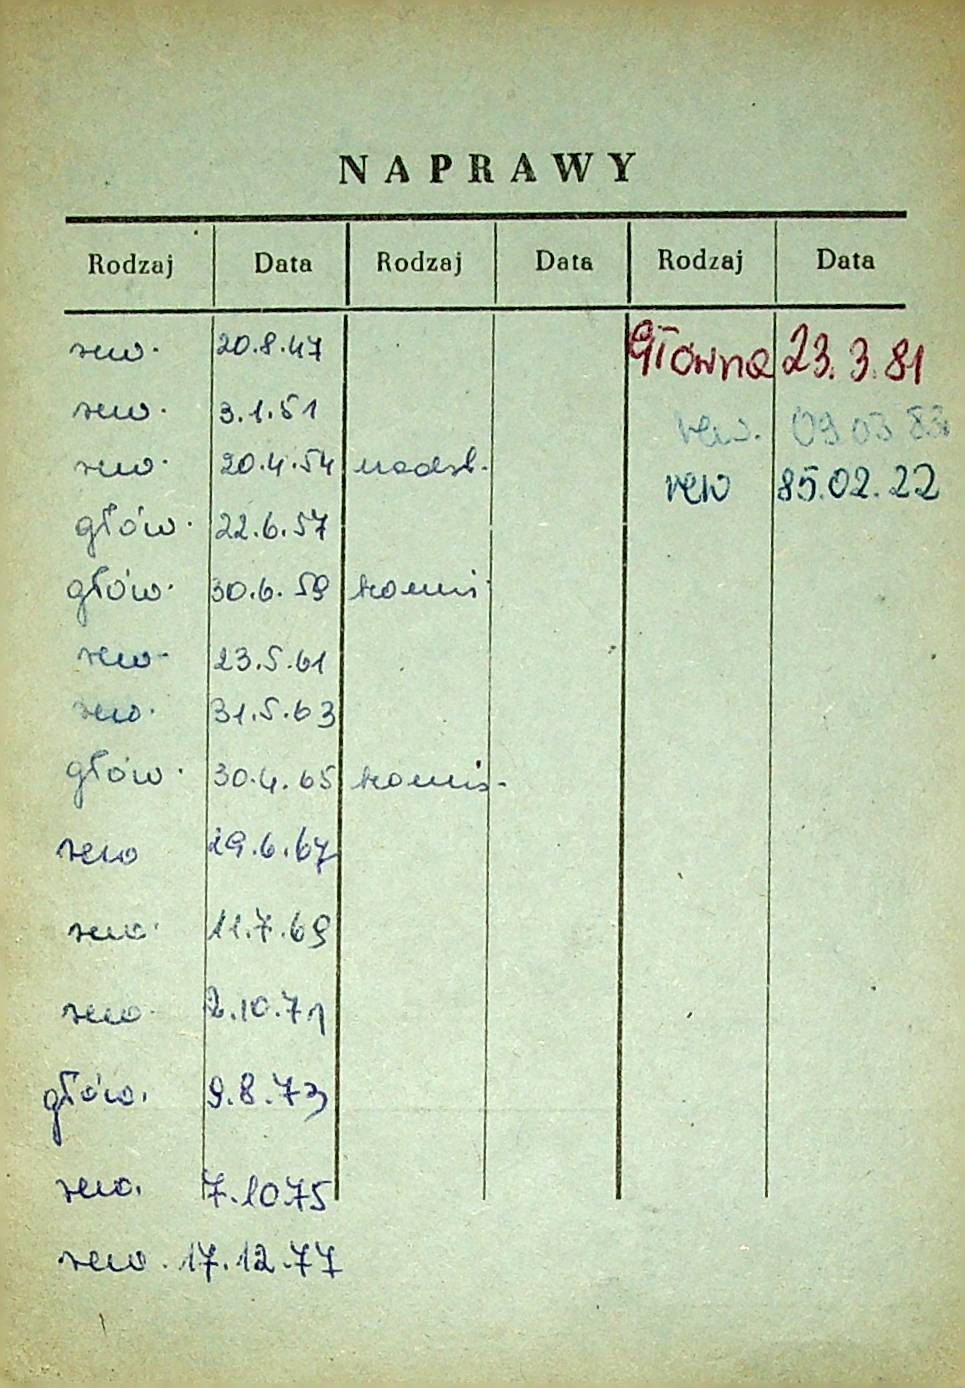 NAPRAWY
Rodzaj Data Rodzaj Data Rodzaj Data
rew. 20.8.47 Główna 23.3.81
rew. 3.1.51 rew. 09 03 83
rew. 20.4.54 nadsł. rew 85.02.22
głów. 22.6.57
głów. 30.6.59 komis
rew. 23.5.61
rew. 31.5.63
głów. 30.4.65 komis.
rew 29.6.67
rew. 11.7.69
rew. 2.10.71
głów. 9.8.73
rew. 7.10.75
rew. 17.12.77